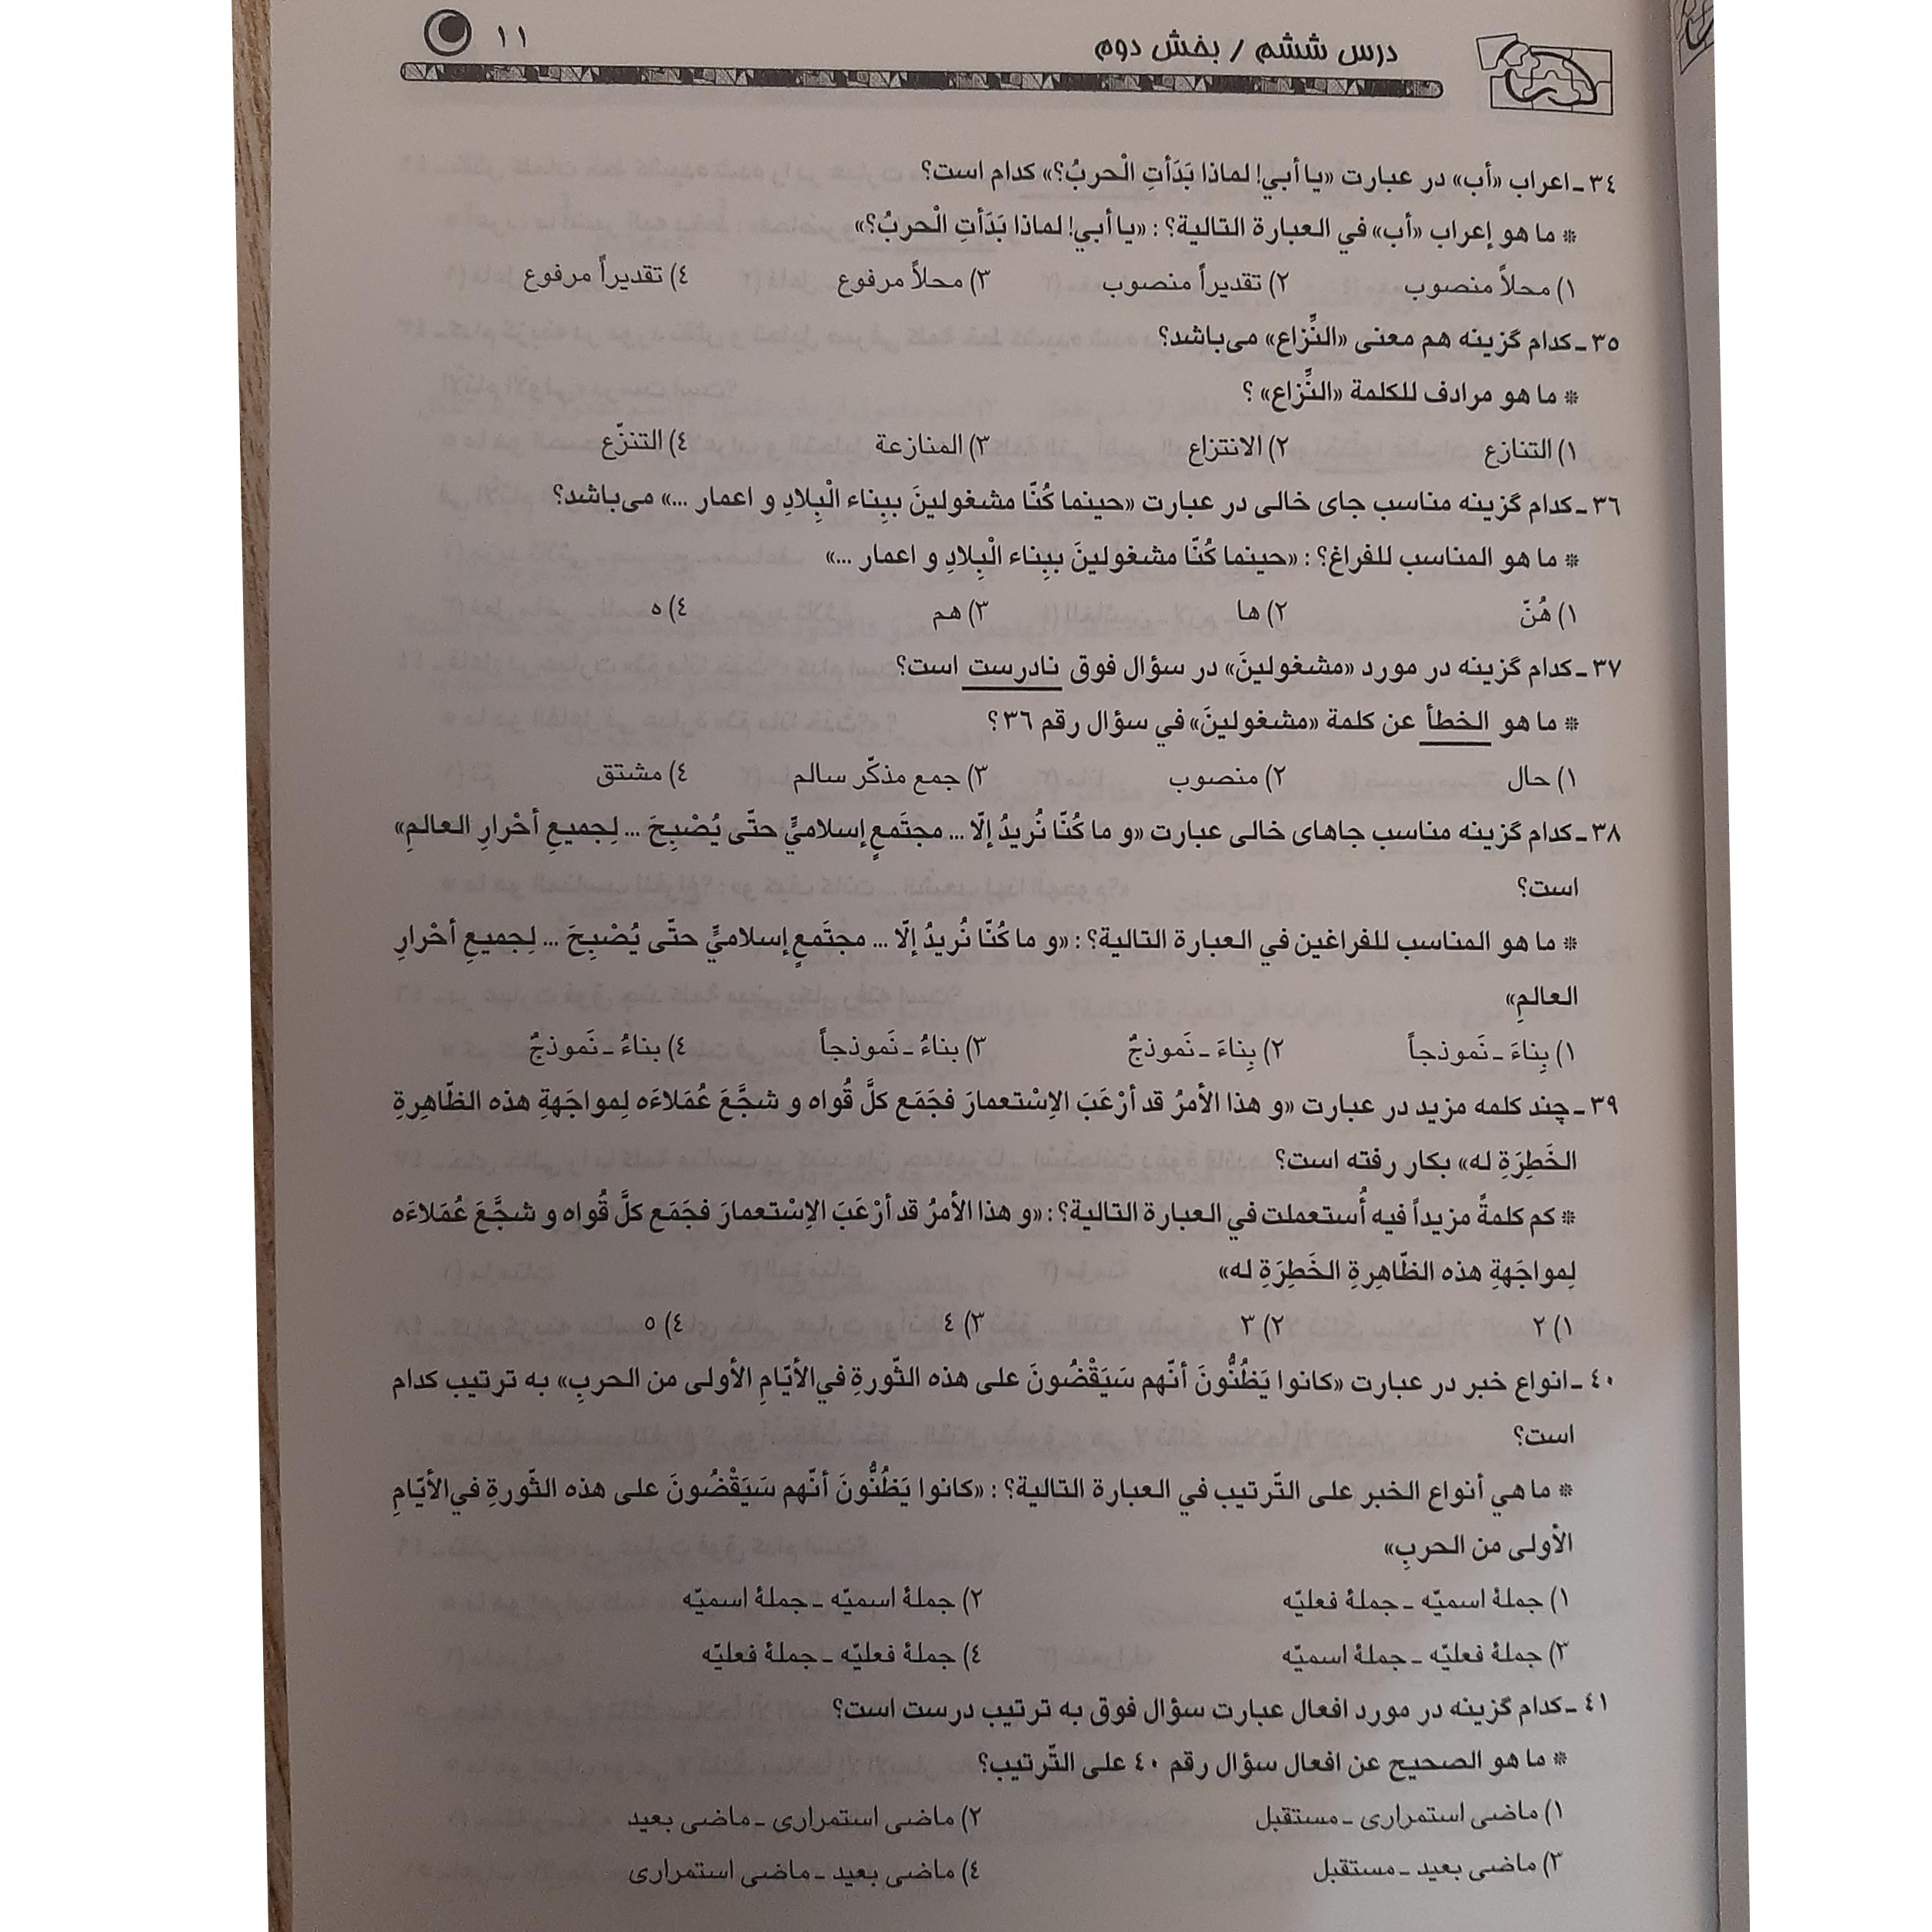 درس ششم / بخش دوم ١١
٣٤ـ اعراب «أب» در عبارت «يا أبي! لماذا بَدَأتِ الْحربُ؟» كدام است؟
* ما هو إعراب «أب» في العبارة التالية؟ : «يا أبي! لماذا بَدَأتِ الْحربُ؟»
١) محلاً منصوب ٢) تقديراً منصوب ٣) محلاً مرفوع ٤) تقديراً مرفوع
٣٥ـ كدام گزينه هم معنى «النِّزاع» مى‌باشد؟
* ما هو مرادف للكلمة «النِّزاع» ؟
١) التنازع ٢) الانتزاع ٣) المنازعة ٤) التنزّع
٣٦ـ كدام گزينه مناسب جاى خالى در عبارت «حينما كُنّا مشغولينَ ببِناء الْبِلادِ و اعمار ...» مى‌باشد؟
* ما هو المناسب للفراغ؟ : «حينما كُنّا مشغولينَ ببِناء الْبِلادِ و اعمار ...»
١) هُنّ ٢) ها ٣) هم ٤) ه
٣٧ـ كدام گزينه در مورد «مشغولينَ» در سؤال فوق نادرست است؟
* ما هو الخطأ عن كلمة «مشغولينَ» في سؤال رقم ٣٦؟
١) حال ٢) منصوب ٣) جمع مذكّر سالم ٤) مشتق
٣٨ـ كدام گزينه مناسب جاهاى خالى عبارت «و ما كُنّا نُريدُ إلّا ... مجتَمعٍ إسلاميٍّ حتّى يُصْبِحَ ... لِجميعِ أحْرارِ العالمِ»
است؟
* ما هو المناسب للفراغين في العبارة التالية؟ : «و ما كُنّا نُريدُ إلّا ... مجتَمعٍ إسلاميٍّ حتّى يُصْبِحَ ... لِجميعِ أحْرارِ
العالمِ»
١) بِناءَ ـ نَموذجاً ٢) بِناءَ ـ نَموذجٌ ٣) بناءُ ـ نَموذجاً ٤) بناءُ ـ نَموذجٌ
٣٩ـ چند كلمه مزيد در عبارت «و هذا الأمرُ قد أرْعَبَ الاِسْتعمارَ فجَمَع كلَّ قُواه و شجَّعَ عُمَلاءَه لِمواجَهةِ هذه الظّاهِرةِ
الخَطِرَةِ له» بكار رفته است؟
* كم كلمةً مزيداً فيه أُستعملت في العبارة التالية؟ : «و هذا الأمرُ قد أرْعَبَ الاِسْتعمارَ فجَمَع كلَّ قُواه و شجَّعَ عُمَلاءَه
لِمواجَهةِ هذه الظّاهِرةِ الخَطِرَةِ له»
١) ٢ ٢) ٣ ٣) ٤ ٤) ٥
٤٠ـ انواع خبر در عبارت «كانوا يَظُنُّونَ أنّهم سَيَقْضُونَ على هذه الثّورةِ في‌الأيّامِ الأولى من الحربِ» به ترتيب كدام
است؟
* ما هي أنواع الخبر على التّرتيب في العبارة التالية؟ : «كانوا يَظُنُّونَ أنّهم سَيَقْضُونَ على هذه الثّورةِ في‌الأيّامِ
الأولى من الحربِ»
١) جملۀ اسميّه ـ جملۀ فعليّه ٢) جملۀ اسميّه ـ جملۀ اسميّه
٣) جملۀ فعليّه ـ جملۀ اسميّه ٤) جملۀ فعليّه ـ جملۀ فعليّه
٤١ـ كدام گزينه در مورد افعال عبارت سؤال فوق به ترتيب درست است؟
* ما هو الصحيح عن افعال سؤال رقم ٤٠ على التّرتيب؟
١) ماضى استمرارى ـ مستقبل ٢) ماضى استمرارى ـ ماضى بعيد
٣) ماضى بعيد ـ مستقبل ٤) ماضى بعيد ـ ماضى استمرارى